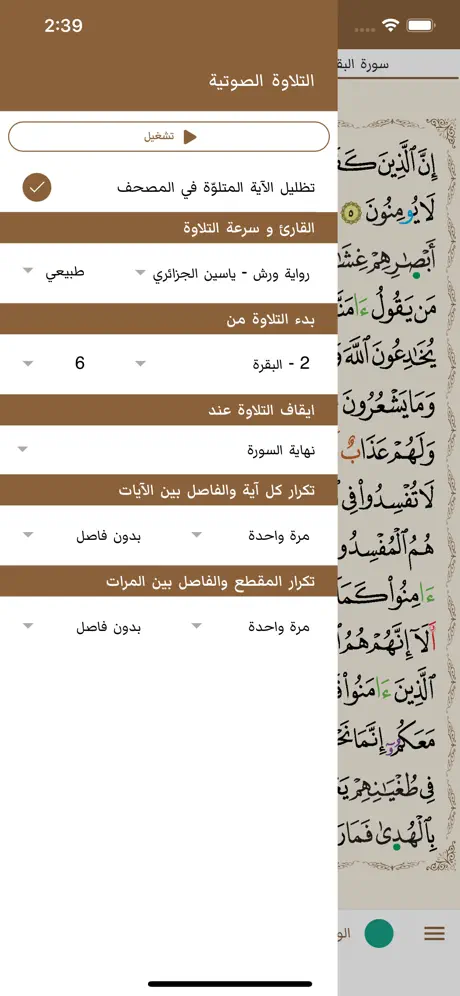 2:39
التلاوة الصوتية
تشغيل
تظليل الآية المتلوّة في المصحف
القارئ و سرعة التلاوة
رواية ورش - ياسين الجزائري
طبيعي
بدء التلاوة من
2 - البقرة
6
ايقاف التلاوة عند
نهاية السورة
تكرار كل آية والفاصل بين الآيات
مرة واحدة
بدون فاصل
تكرار المقطع والفاصل بين المرات
مرة واحدة
بدون فاصل
سورة البق
إِنَّ ٱلَّذِينَ كَفَ
لَا يُومِنُونَ ٥
أَبْصَٰرِهِمْ غِشَٰ
مَن يَقُولُ ءَامَنَّ
يُخَٰدِعُونَ ٱللَّهَ وَ
وَمَا يَشْعُرُونَ
وَلَهُمْ عَذَابٌ
لَا تُفْسِدُوا۟ فِي
هُمُ ٱلْمُفْسِدُو
ءَامِنُوا۟ كَمَا
أَلَآ إِنَّهُمْ هُمُ
ٱلَّذِينَ ءَامَنُوا۟
مَعَكُمُۥٓ إِنَّمَا نَحْ
فِي طُغْيَٰنِهِمْ يَعْ
بِٱلْهُدَىٰ فَمَا رَ
الو